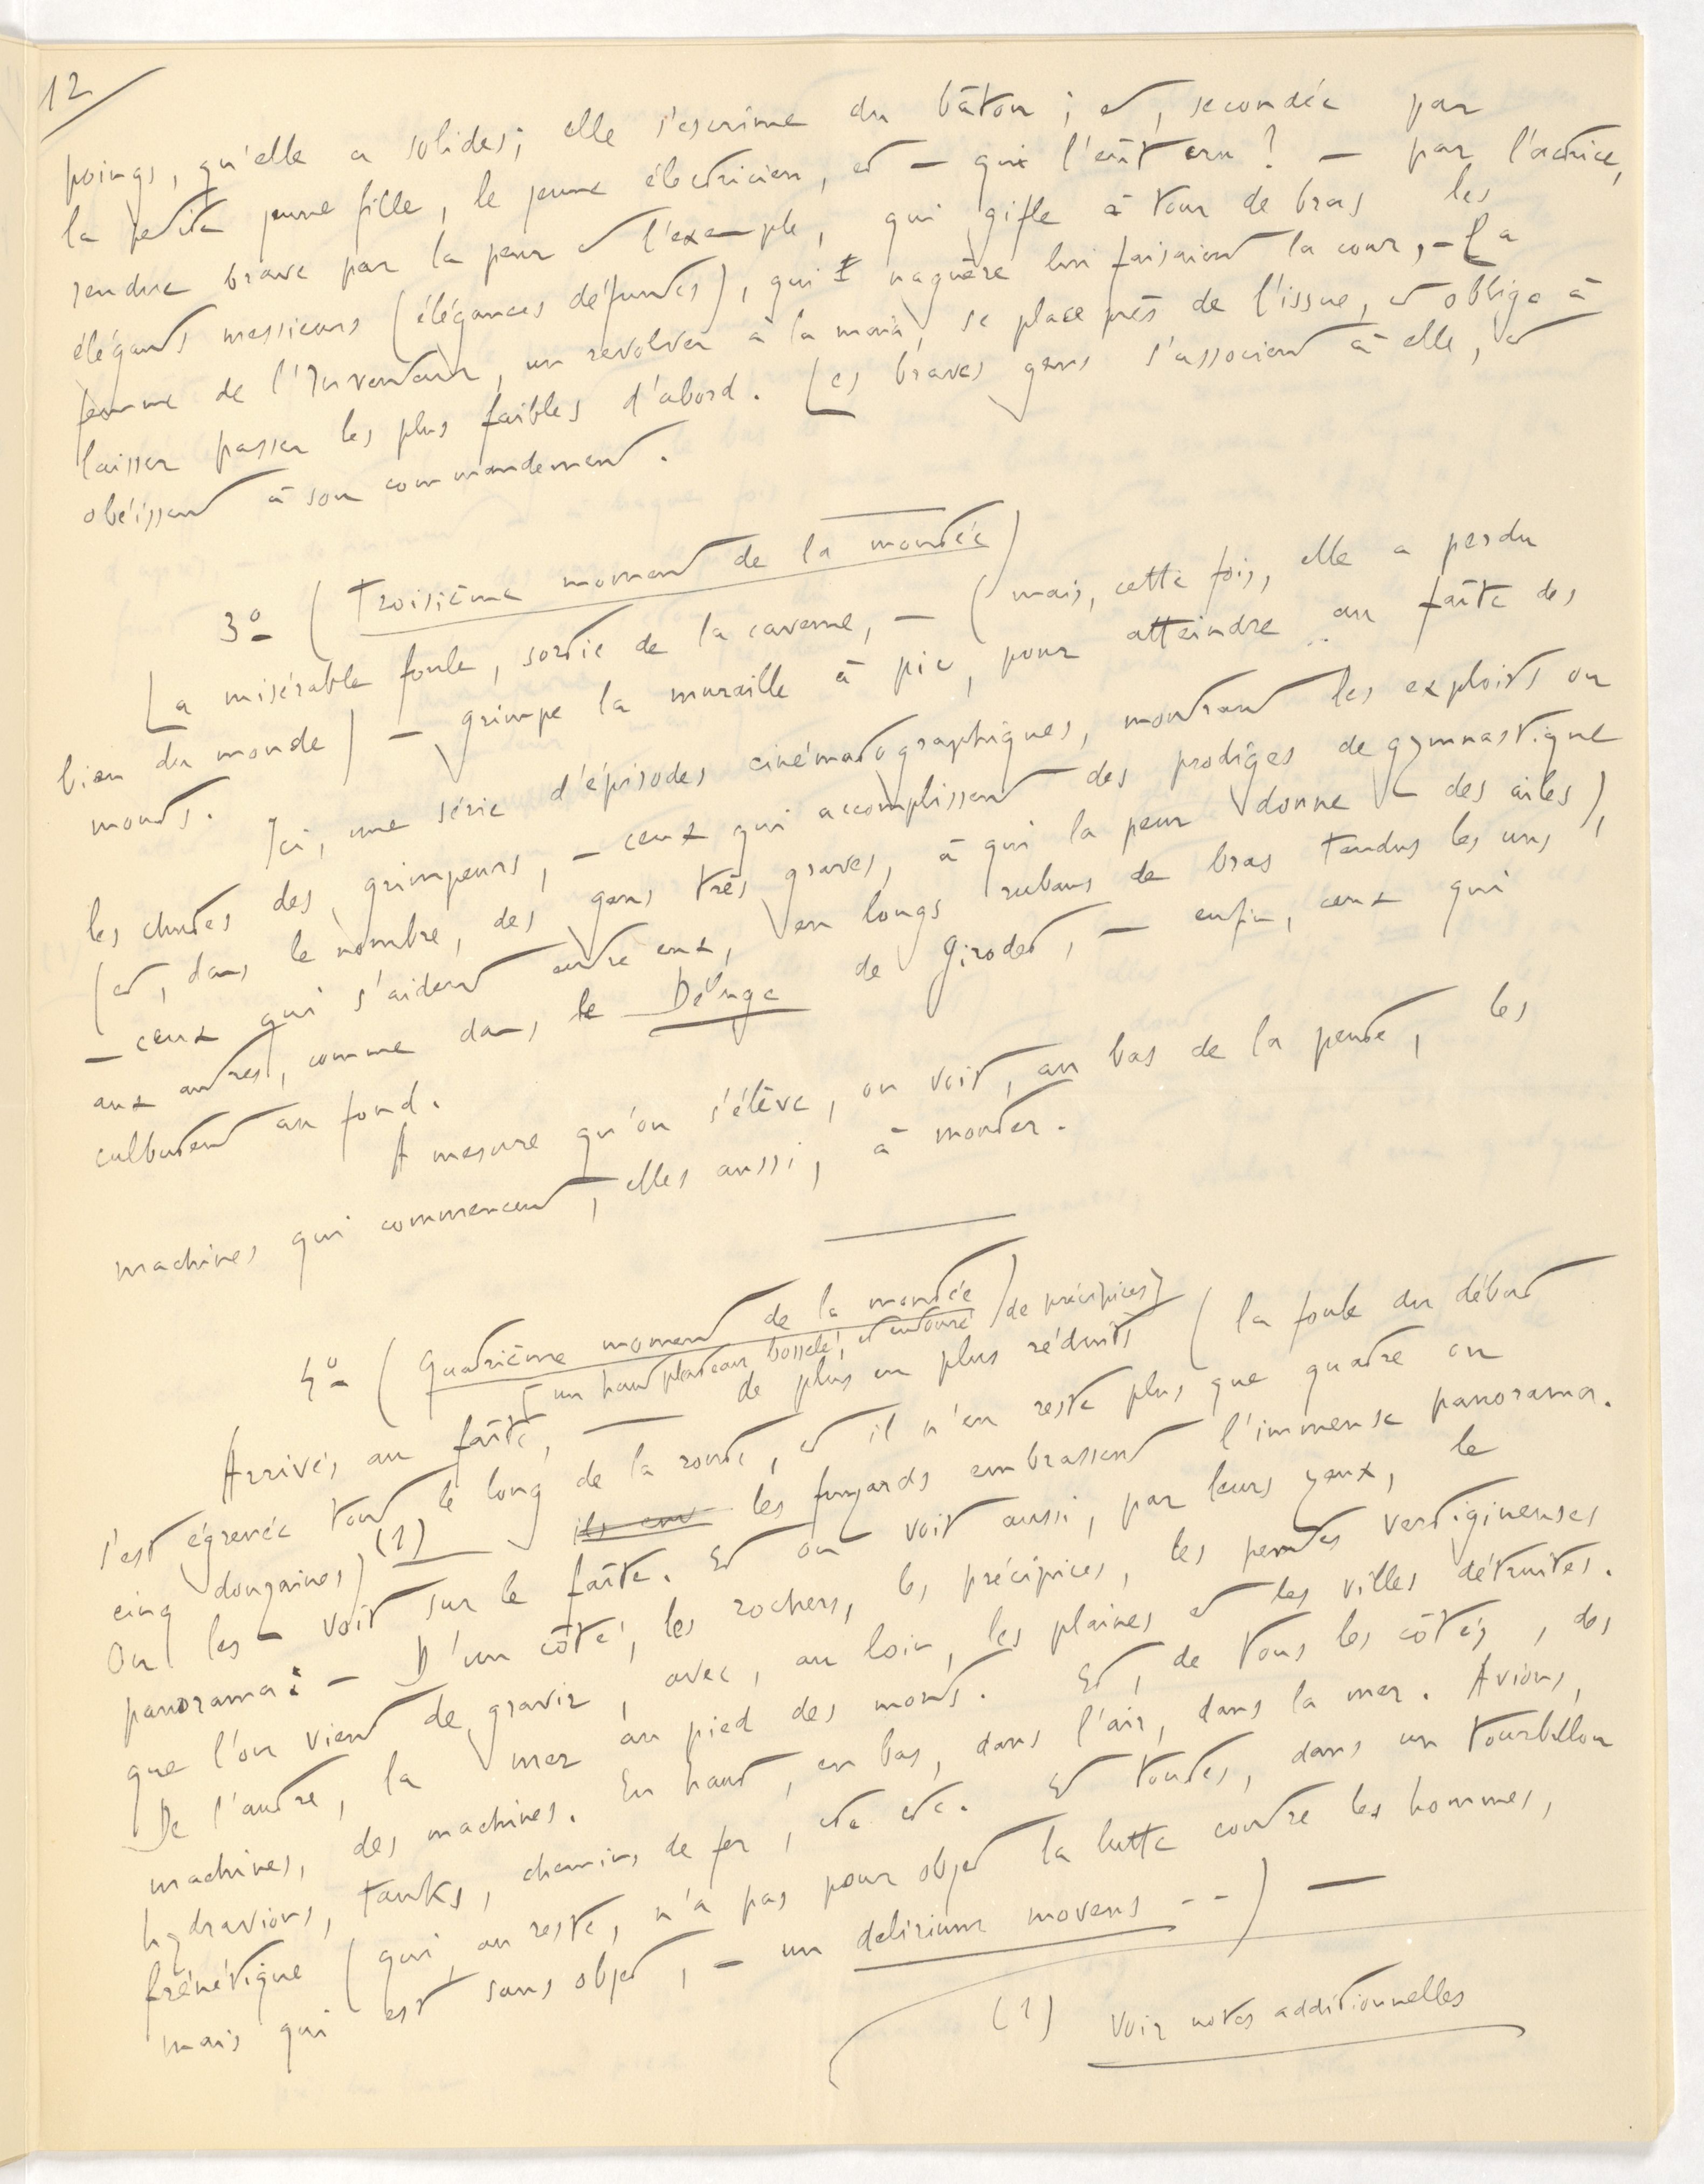 12
poings, qu'elle a solides; elle s'escrime du bâton ; et, secondée par
la petite jeune fille, le jeune électricien, et – qui l'eût cru ? – par l'actrice,
rendue brave par la peur et l'exemple, qui gifle à tour de bras les
élégants messieurs (élégances défuntes), qui naguère lui faisaient la cour, – La
femme de l'Inventeur, un revolver à la main, se place près de l'issue, et oblige à
laisser passer les plus faibles d'abord. Les braves gens s'associent à elle, et
obéissent à son commandement.
3º (Troisième moment de la montée)
La misérable foule, sortie de la caverne, – (mais, cette fois, elle a perdu
bien du monde) – grimpe la muraille à pic, pour atteindre au faîte des
monts.
Ici, une série d'épisodes cinématographiques, montrant les exploits ou
les chutes des grimpeurs, – ceux qui accomplissent des prodiges de gymnastique
(et, dans le nombre, des gens très graves, à qui la peur donne des ailes),
– ceux qui s'aident entre eux, en longs rubans de bras tendus les uns
aux autres, comme dans le Déluge de Girodet, – enfin, ceux qui
culbutent au fond.
A mesure qu'on s'élève, on voit, au bas de la pente, les
machines qui commencent, elles aussi, à monter.
4º (Quatrième moment de la montée)
[un haut plateau bosselé, et entouré de précipices]
Arrivés au faîte, – de plus en plus réduits (la foule du début
s'est égrenée tout le long de la route, et il n'en reste plus que quatre ou
cinq douzaines) (1) – ils ont les fuyards embrassent l'immense panorama.
On les voit sur le faîte. Et on voit aussi, par leurs yeux, le
panorama : – D'un côté, les rochers, les précipices, les pentes vertigineuses
que l'on vient de gravir, avec, au loin, les plaines et les villes détruites.
De l'autre, la mer au pied des monts. Et, de tous les côtés, des
machines, des machines. En haut, en bas, dans l'air, dans la mer. Avions,
hydravions, tanks, chemins de fer, etc etc. Et toutes, dans un tourbillon
frénétique (qui, au reste, n'a pas pour objet la lutte contre les hommes,
mais qui est sans objet, – un delirium movens - -) –
(1) Voir notes additionnelles